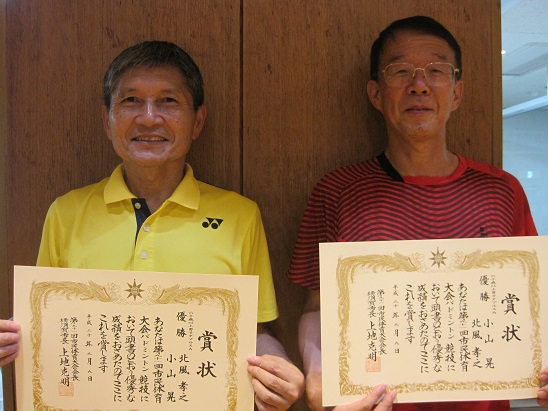 賞状
優勝
北風孝之
小山晃
あなたは第 回市民体育
大会バドミントン競技に
おいて頭書のとおり優秀な
成績をおさめたのでここに
これを賞します
平成 年八月 日
第 回市民体育大会会長
横須賀市長 上地克明
賞状
優勝
小山晃
北風孝之
あなたは第 回市民体育
大会バドミントン競技に
おいて頭書のとおり優秀な
成績をおさめたのでここに
これを賞します
平成 年八月 日
第 回市民体育大会会長
横須賀市長 上地克明